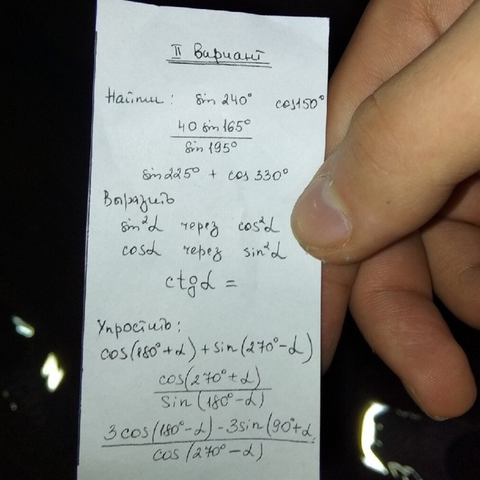 II Вариант
Найти: sin 240° cos150°
40 sin 165°
sin 195°
sin 225° + cos 330°
Выразить
sin²α через cos²α
cosα через sin²α
ctgα =
Упростить:
cos(180°+α)+sin(270°-α)
cos(270°+α)
sin(180°-α)
3cos(180°-α)-3sin(90°+α
cos(270°-α)